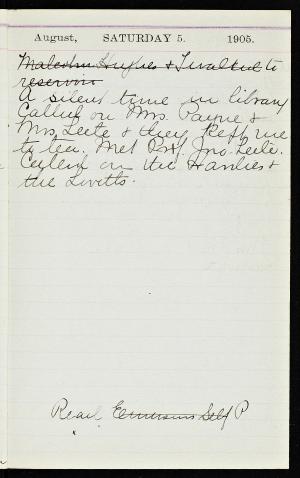 August, SATURDAY 5. 1905.
Malcolm Hughes & I walked to
reservoir
A silent time in library
Called on Mrs. Payne &
Mrs. Leete & they kept me
to tea. Met Jno. Leete.
Called on the Hanlies &
the Lovetts.
Read Emersons Self P